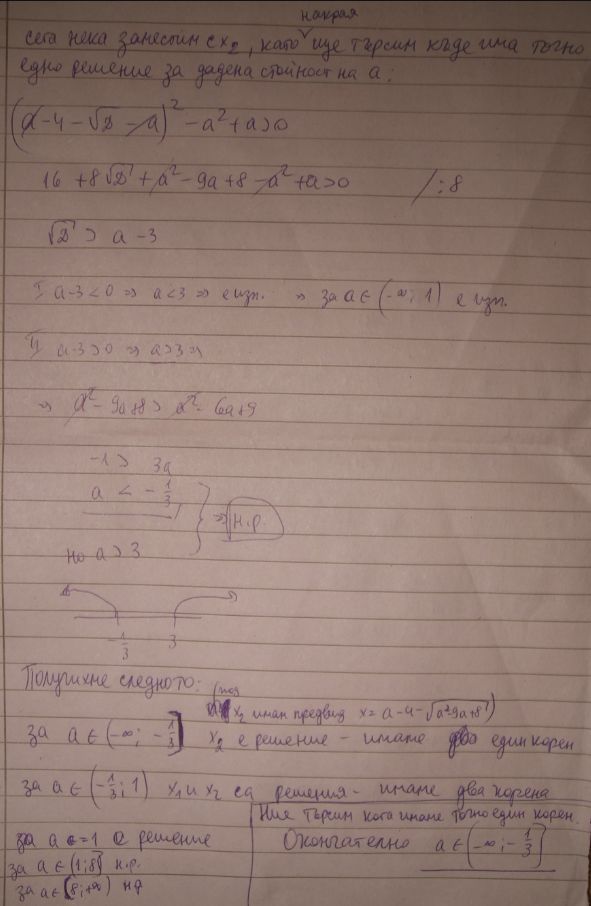 накрая
сега нека заместим с x₂, като ще търсим къде има точно
едно решение за дадена стойност на a:
(a-4-√D-a)² - a² + a > 0
16 + 8√D + a² - 9a + 8 - a² + a > 0 /:8
√D > a - 3
I a-3<0 ⇒ a<3 ⇒ е изп. ⇒ за a ∈ (-∞; 1) е изп.
II a-3>0 ⇒ a>3 ⇒
⇒ a² - 9a + 8 > a² - 6a + 9
-1 > 3a
a < -1/3
⇒ н.р.
но a > 3
-1/3 3
Получихме следното:
(под
x₂ имам предвид x = a-4-√(a²-9a+8))
за a ∈ (-∞; -1/3] x₂ е решение - имаме един корен
за a ∈ (-1/3; 1) x₁ и x₂ са решения - имаме два корена
Ние търсим кога имаме точно един корен.
за a = 1 е решение
Окончателно a ∈ (-∞; -1/3]
за a ∈ (1; 8] н.р.
за a ∈ (8; +∞) н.р.